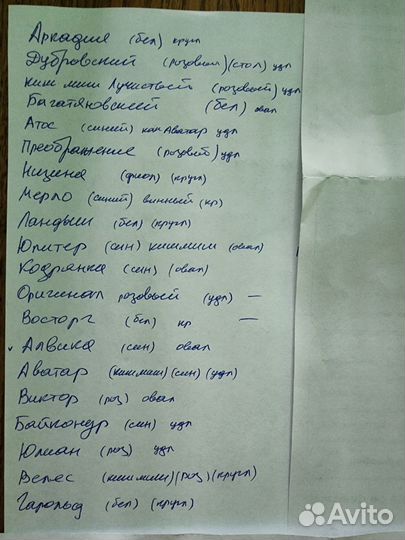 Аркадия (бел) кругл
Дубровский (розовый) (стол) удл
киш миш Лучистый (розовый) удл
Багатяновский (бел) овал
Атос (синий) как Аватар удл
Преображение (розовый) удл
Низина (фиол) (кругл)
Мерло (синий) винный (кр)
Ландыш (бел) (кругл)
Юпитер (син) кишмиш (овал)
Кодрянка (син) (овал)
Оригинал розовый (удл) —
Восторг (бел) кр —
Алвика (син) овал
Аватар (кишмиш) (син) (удл)
Виктор (роз) овал
Байконур (син) удл
Юлиан (роз) удл
Велес (кишмиш) (роз) (кругл)
Гарольд (бел) (кругл)
Avito